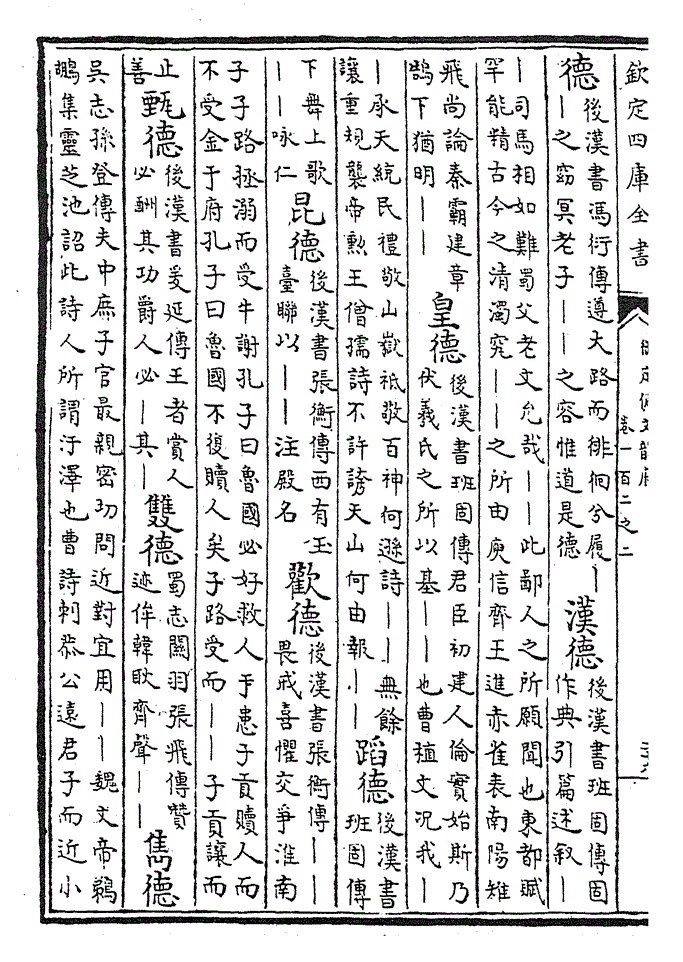 欽定四庫全書
卷一百二之二
德
後漢書馮衍傳遵大路而徘徊兮履｜
｜之窈冥老子｜｜之容惟道是德
漢德
後漢書班固傳固
作典引篇述叙｜
｜司馬相如難蜀父老文允哉｜｜此鄙人之所願聞也東都賦
罕能精古今之清濁究｜｜之所由庾信齊王進赤雀表南陽雉
飛尚論秦霸建章
鵠下猶明｜｜
皇德
後漢書班固傳君臣初建人倫實始斯乃
伏羲氏之所以基｜｜也曹植文况我｜
｜承天統民禮敬山嶽祗敬百神何遜詩｜｜無餘
讓重規襲帝勲王僧孺詩不許謗天山何由報｜｜
蹈德
後漢書
班固傳
下舞上歌
｜｜咏仁
昆德
後漢書張衡傳西有玉
臺聯以｜｜注殿名
歡德
後漢書張衡傳｜｜
畏戒喜懼交爭淮南
子子路拯溺而受牛謝孔子曰魯國必好救人于患子貢贖人而
不受金于府孔子曰魯國不復贖人矣子路受而｜｜子貢讓而
止
善
甄德
後漢書爰延傳王者賞人
必酬其功爵人必｜其｜
雙德
蜀志關羽張飛傳贊
迹侔韓耿齊聲｜｜
雋德
吳志孫登傳夫中庶子官最親密切問近對宜用｜｜魏文帝鵜
鶘集靈芝池詔此詩人所謂汙澤也曹詩刺恭公遠君子而近小